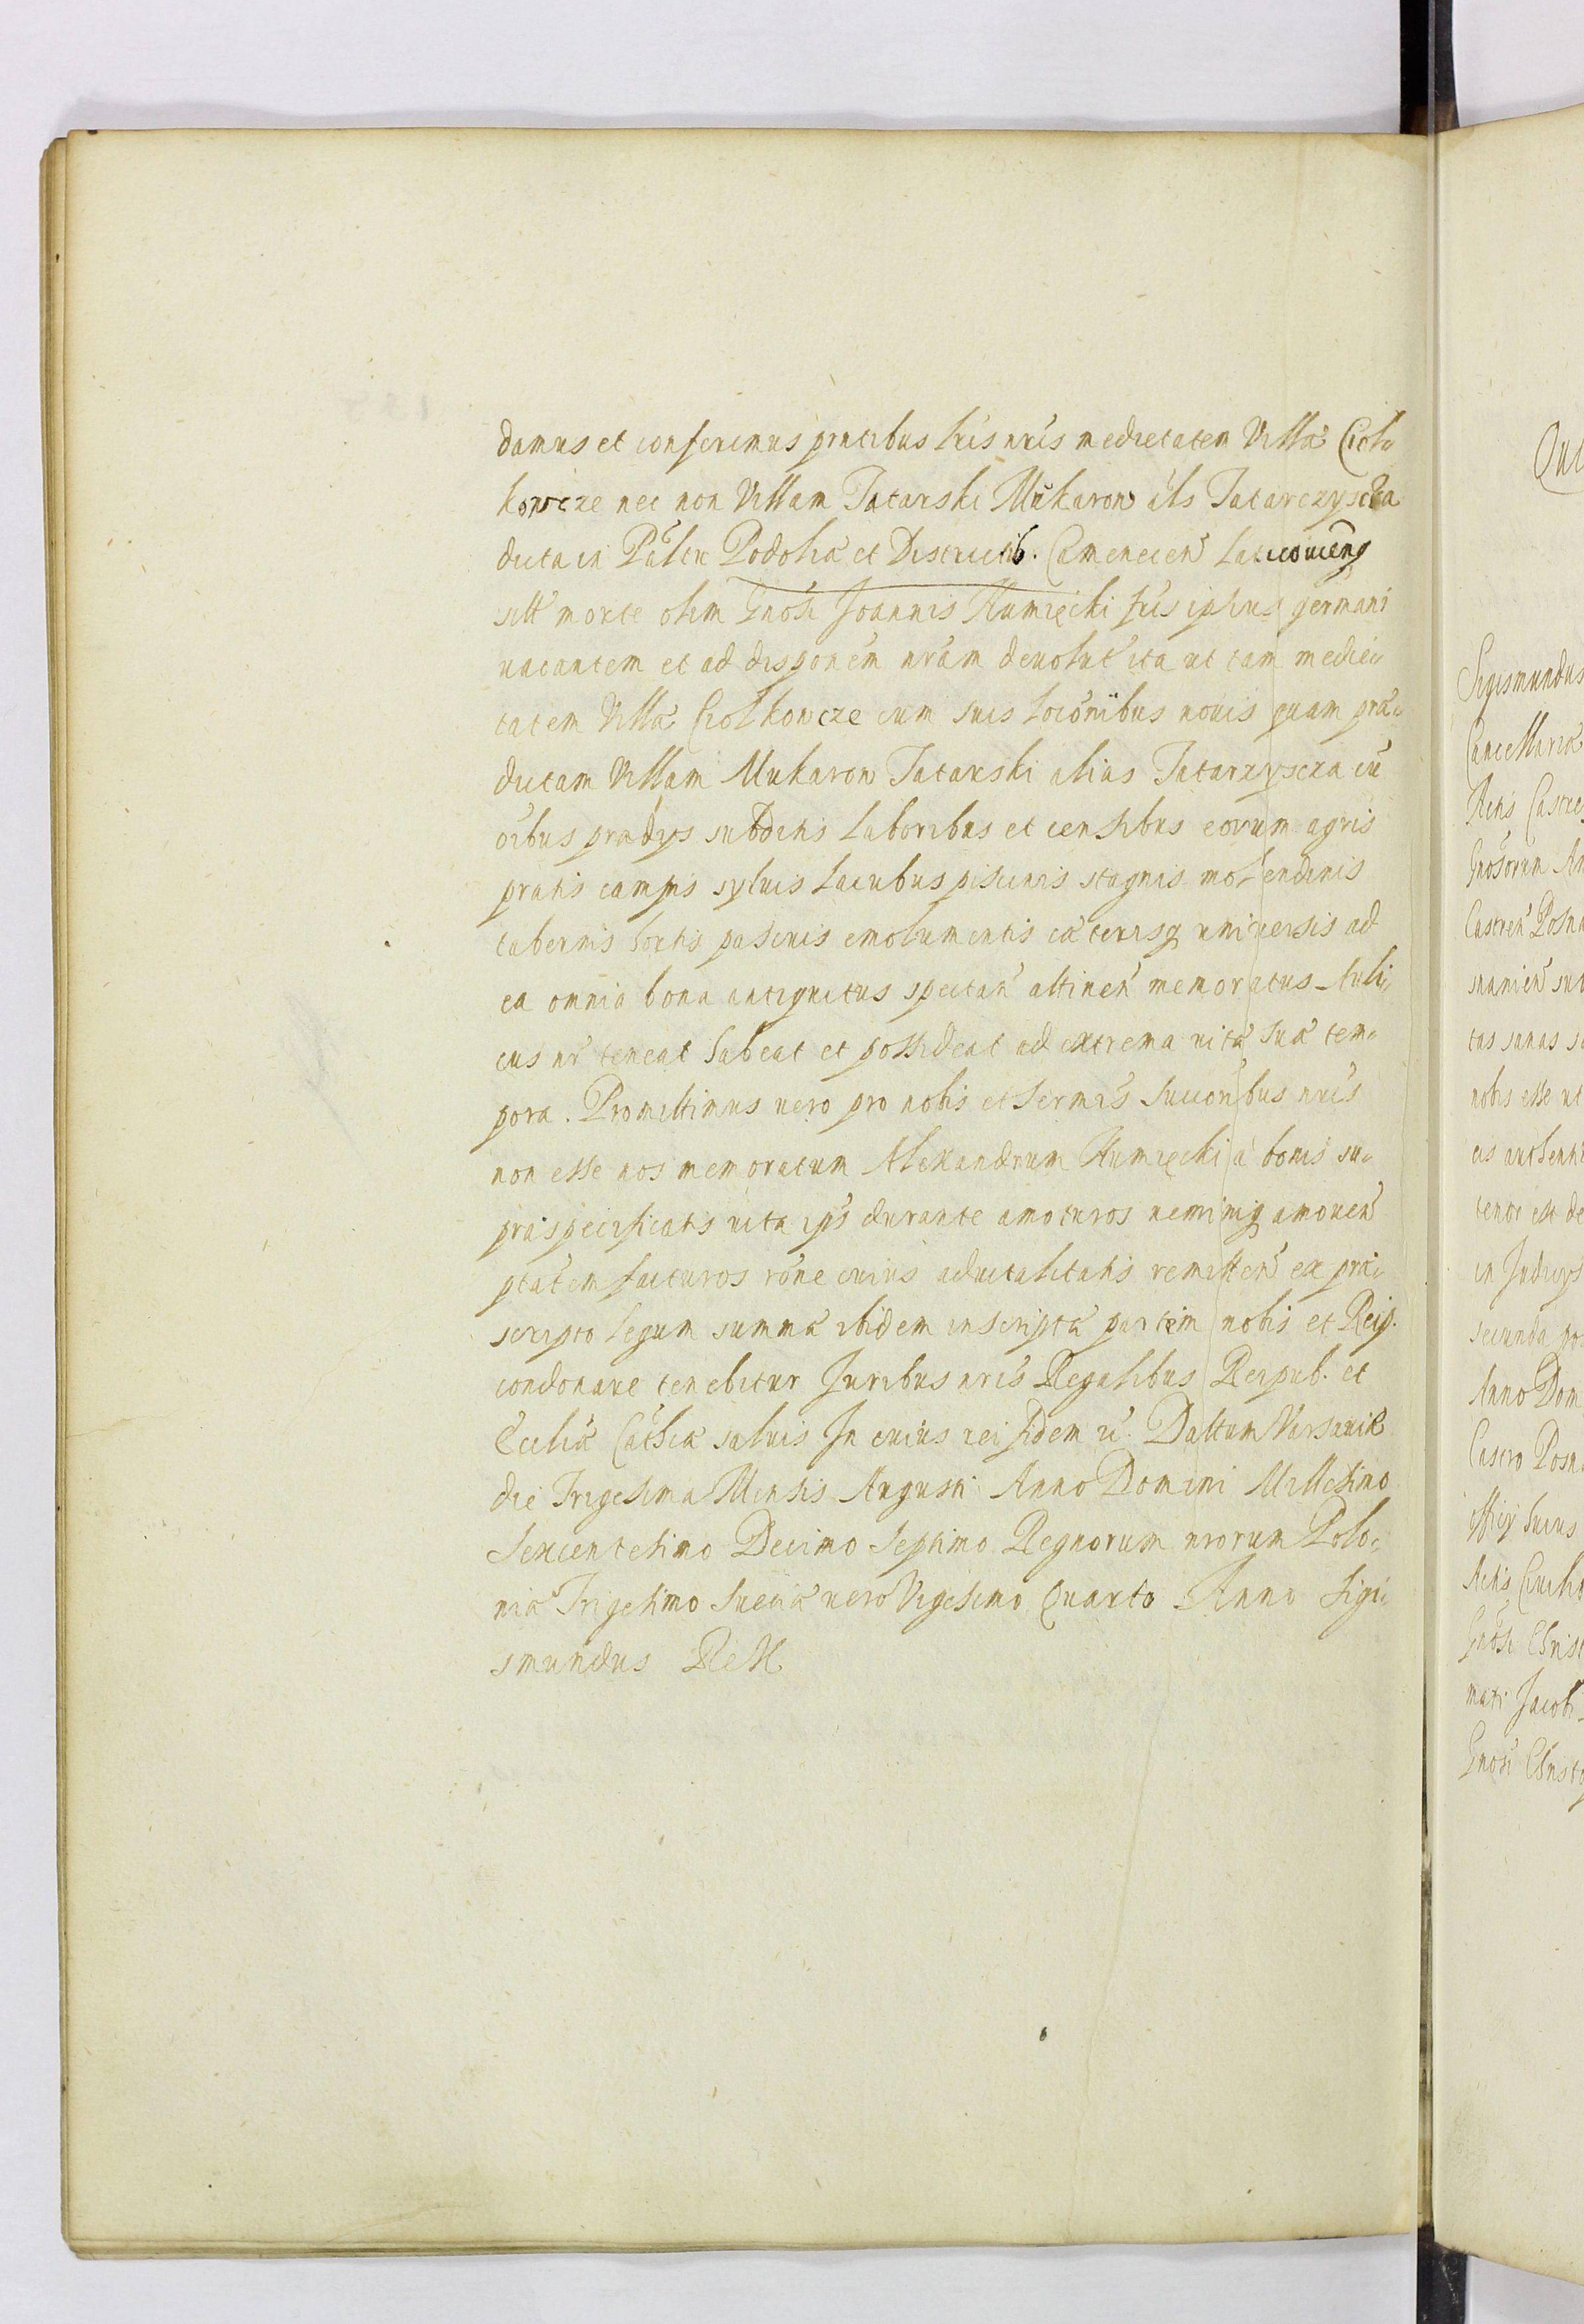 damus et conferimus pntibus lris nris medietatem Villæ Ciol-
kowcze nec non Villam Tatarski Mukarow als Tatarczyscza
dicta in Paltu Podoliæ et Districtib. Camenecen Laticouieng
sitt morte olim Gnosi Joannis Humięcki fris ipsius germani
uacantem et ad disponem nram deuolut ita ut tam medie-
tatem Villæ Ciolkowcze cum suis locōnibus nouis quam præ-
dictam Villam Mukarow Tatarski alias Tatarzyscza cū
oibus prædys subditis laboribus et censibus eorum agris
pratis campis syluis lacubus piscinis stagnis molendinis
tabernis hortis pascuis emolumentis cæterisq uniuersis ad
ea omnia bona antiquitus spectan attinen memoratus Auli-
cus nr teneat habeat et possideat ad extrema uitæ suæ tem-
pora. Promittimus uero pro nobis et Sermis Succoribus nris
non esse nos memoratum Alexandrum Humięcki à bonis su-
præspecificatis uita ips durante amoturos neminiq amouen
ptatem facturos rone cuius aduitalitatis remitten ex præ-
scripto legum summæ ibidem inscriptæ partem nobis et Reip.
condonare tenebitur Juribus nris Regalibus Reipub. et
Ecclīæ Cathcæ saluis In cuius rei fidem rc. Dattum Varsauiæ
die Trigesima Mensis Augusti Anno Domini Millesimo
Sexcentesimo Decimo Septimo Regnorum nrorum Polo-
niæ Trigesimo Sueciæ uero Vigesimo Quarto Anno Sigi-
smundus Rex
Sigismundus
Cancellariæ
Actis Castre
Gnosorum
Castren Posna
tas sanas
nobis esse ut
tenor est de
in Judicys
secunda
Anno Dom
Castro Posn
Gnosi Christ
mati Jacobi
Gnosi Christ